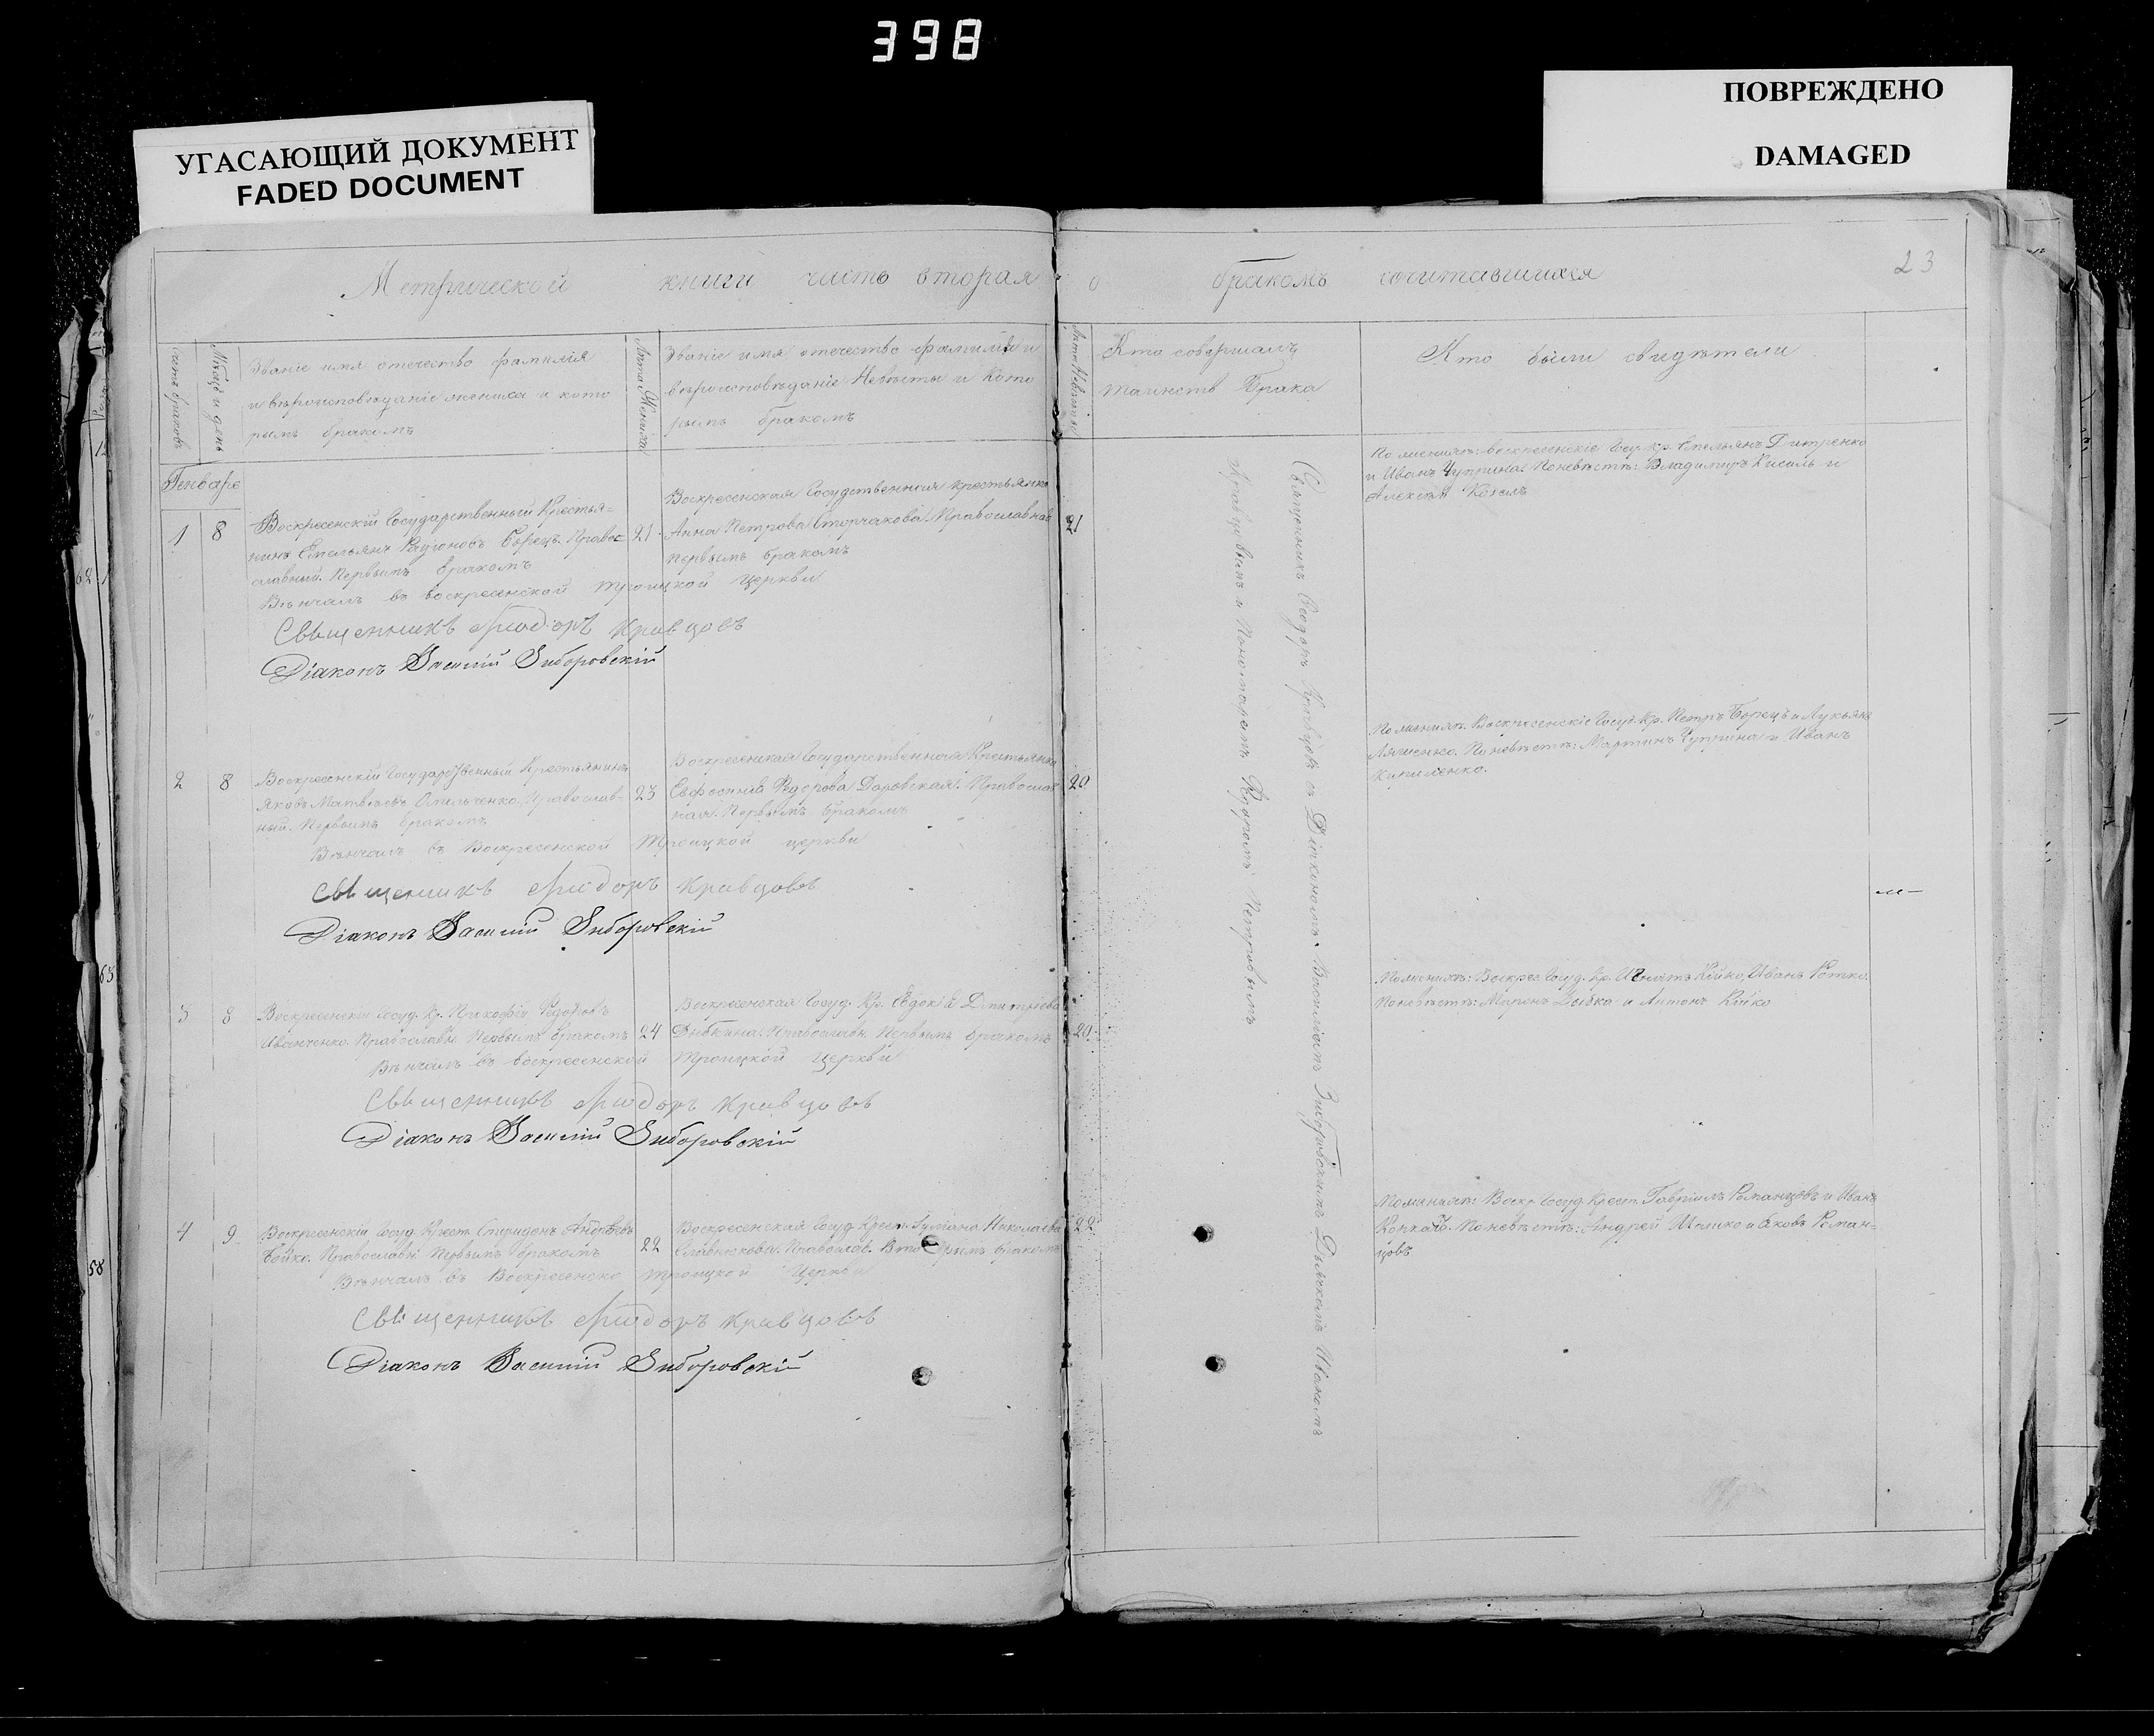 398
УГАСАЮЩИЙ ДОКУМЕНТ
FADED DOCUMENT
ПОВРЕЖДЕНО
DAMAGED
Метрической книги часть вторая о бракомъ сочитавшихся
23
счетъ браковъ
Мѣсяцъ и день
Званіе имя отечество фамилія
и вѣроисповѣданіе жениха и кото
рымъ бракомъ
Лѣта Жениха
Званіе имя отечество фамилія и
вѣроисповѣданіе Невѣсты и Кото
рымъ бракомъ
Лѣта Невѣсты
Кто совершалъ
таинств Брака
Кто были свидѣтели
Генваре
1
8
Воскресенскій Государственный Крестья-
нинъ Емельянъ Родіоновъ Борецъ. Право-
славный. Первымъ бракомъ
21
Воскресенская Государственная крестьянка
Анна Петрова Сторчакова. Православная
первымъ бракомъ
21
Вѣнчалъ въ воскресенской троицкой церкви
Священникъ Кравцовъ
Діаконъ Василій Зиборовскій
По женихѣ: воскресенскіе Госу. Кр. Емельянъ Дитренко
и Иванъ Чуприна. По невѣстѣ: Владимиръ Кисиль и
Алексѣй Козелъ
Священникъ Ѳеодоръ Кравцовъ съ Діакономъ Василіемъ Зиборовскимъ Дьячкомъ Иваномъ
Кравцовымъ и Пономаремъ Ѳедоромъ Петровымъ
2
8
Воскресенскій Государственный Крестьянинъ
Яковъ Матвѣевъ Омельченко. Православ-
ный. Первымъ бракомъ
23
Воскресенская Государственная Крестьянка
Евфросинія Ѳедорова Даровская. Православ
ная. Первымъ бракомъ
20
Вѣнчалъ въ Воскресенской Троицкой церкви
Священникъ Кравцовъ
Діаконъ Василій Зиборовскій
По женихѣ. Воскресенскіе Госуд. Кр. Петръ Борецъ и Лукьянъ
Ляшенко. По невѣстѣ: Мартинъ Чуприна и Иванъ
Кириленко.
3
8
Воскресенскій Госуд. Кр. Прокофій Ѳедоровъ
Иванченко. Православн. Первымъ бракомъ
24
Воскресенская Госуд. Кр. Евдокія Дмитріева
Дыбкина. Православн. Первымъ бракомъ
20
Вѣнчалъ въ воскресенской троицкой церкви
Священникъ Кравцовъ
Діаконъ Василій Зиборовскій
По женихѣ: Воскрес. Госуд. Кр. Игнатъ Кійко, Иванъ Ротко.
По невѣстѣ: Миронъ Дыбка и Антонъ Кійко
4
9
Воскресенскій Госуд. Крест. Спиридонъ Андреевъ
Бойко. Православн. Первымъ бракомъ
22
Воскресенская Госуд. Крест. Николаева
Православ. Вторымъ бракомъ
22
Вѣнчалъ въ Воскресенско троицкой Церкви
Священникъ Кравцовъ
Діаконъ Василій Зиборовскій
По женихѣ: Воскр. Госуд. Крест. Гавріилъ Романцовъ и Иванъ
По невѣстѣ: Андрей и Яковъ Роман-
цовъ